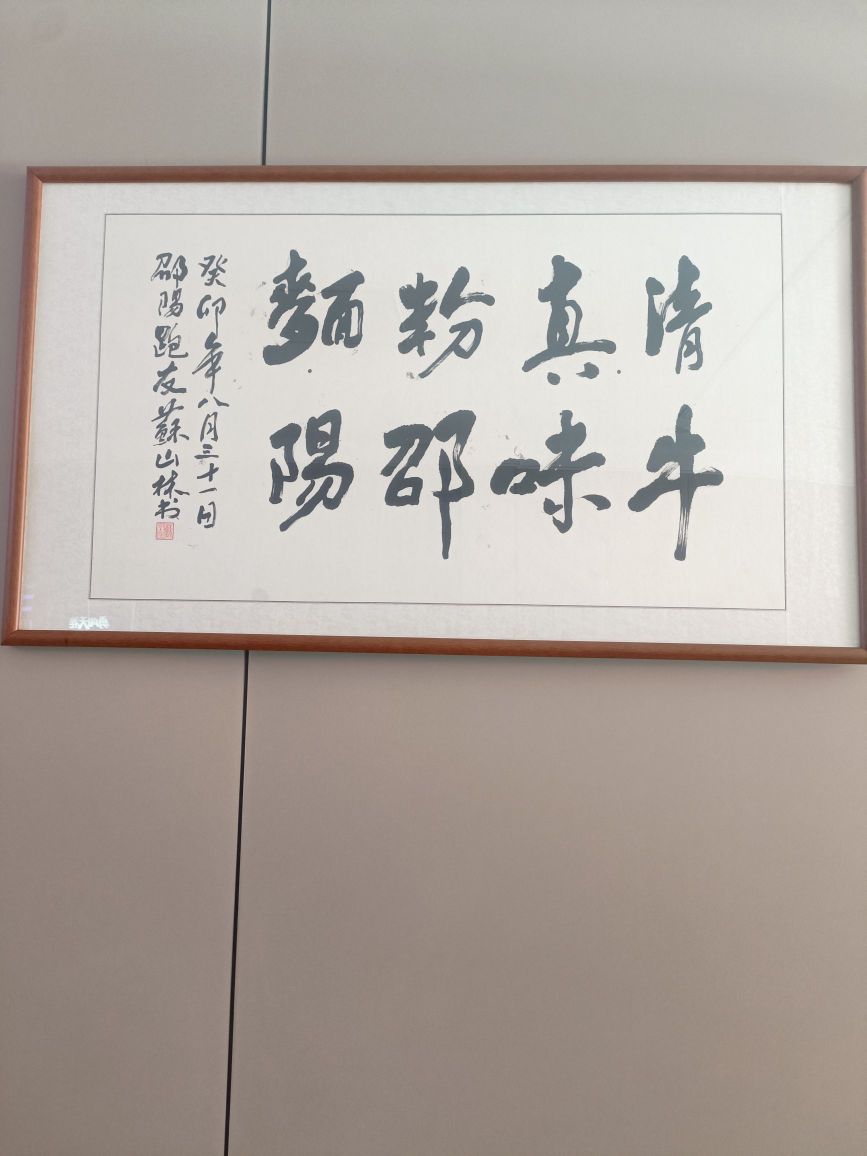 清真粉麵
牛味邵陽
癸卯年八月三十一日
邵陽跑友蘇山林书